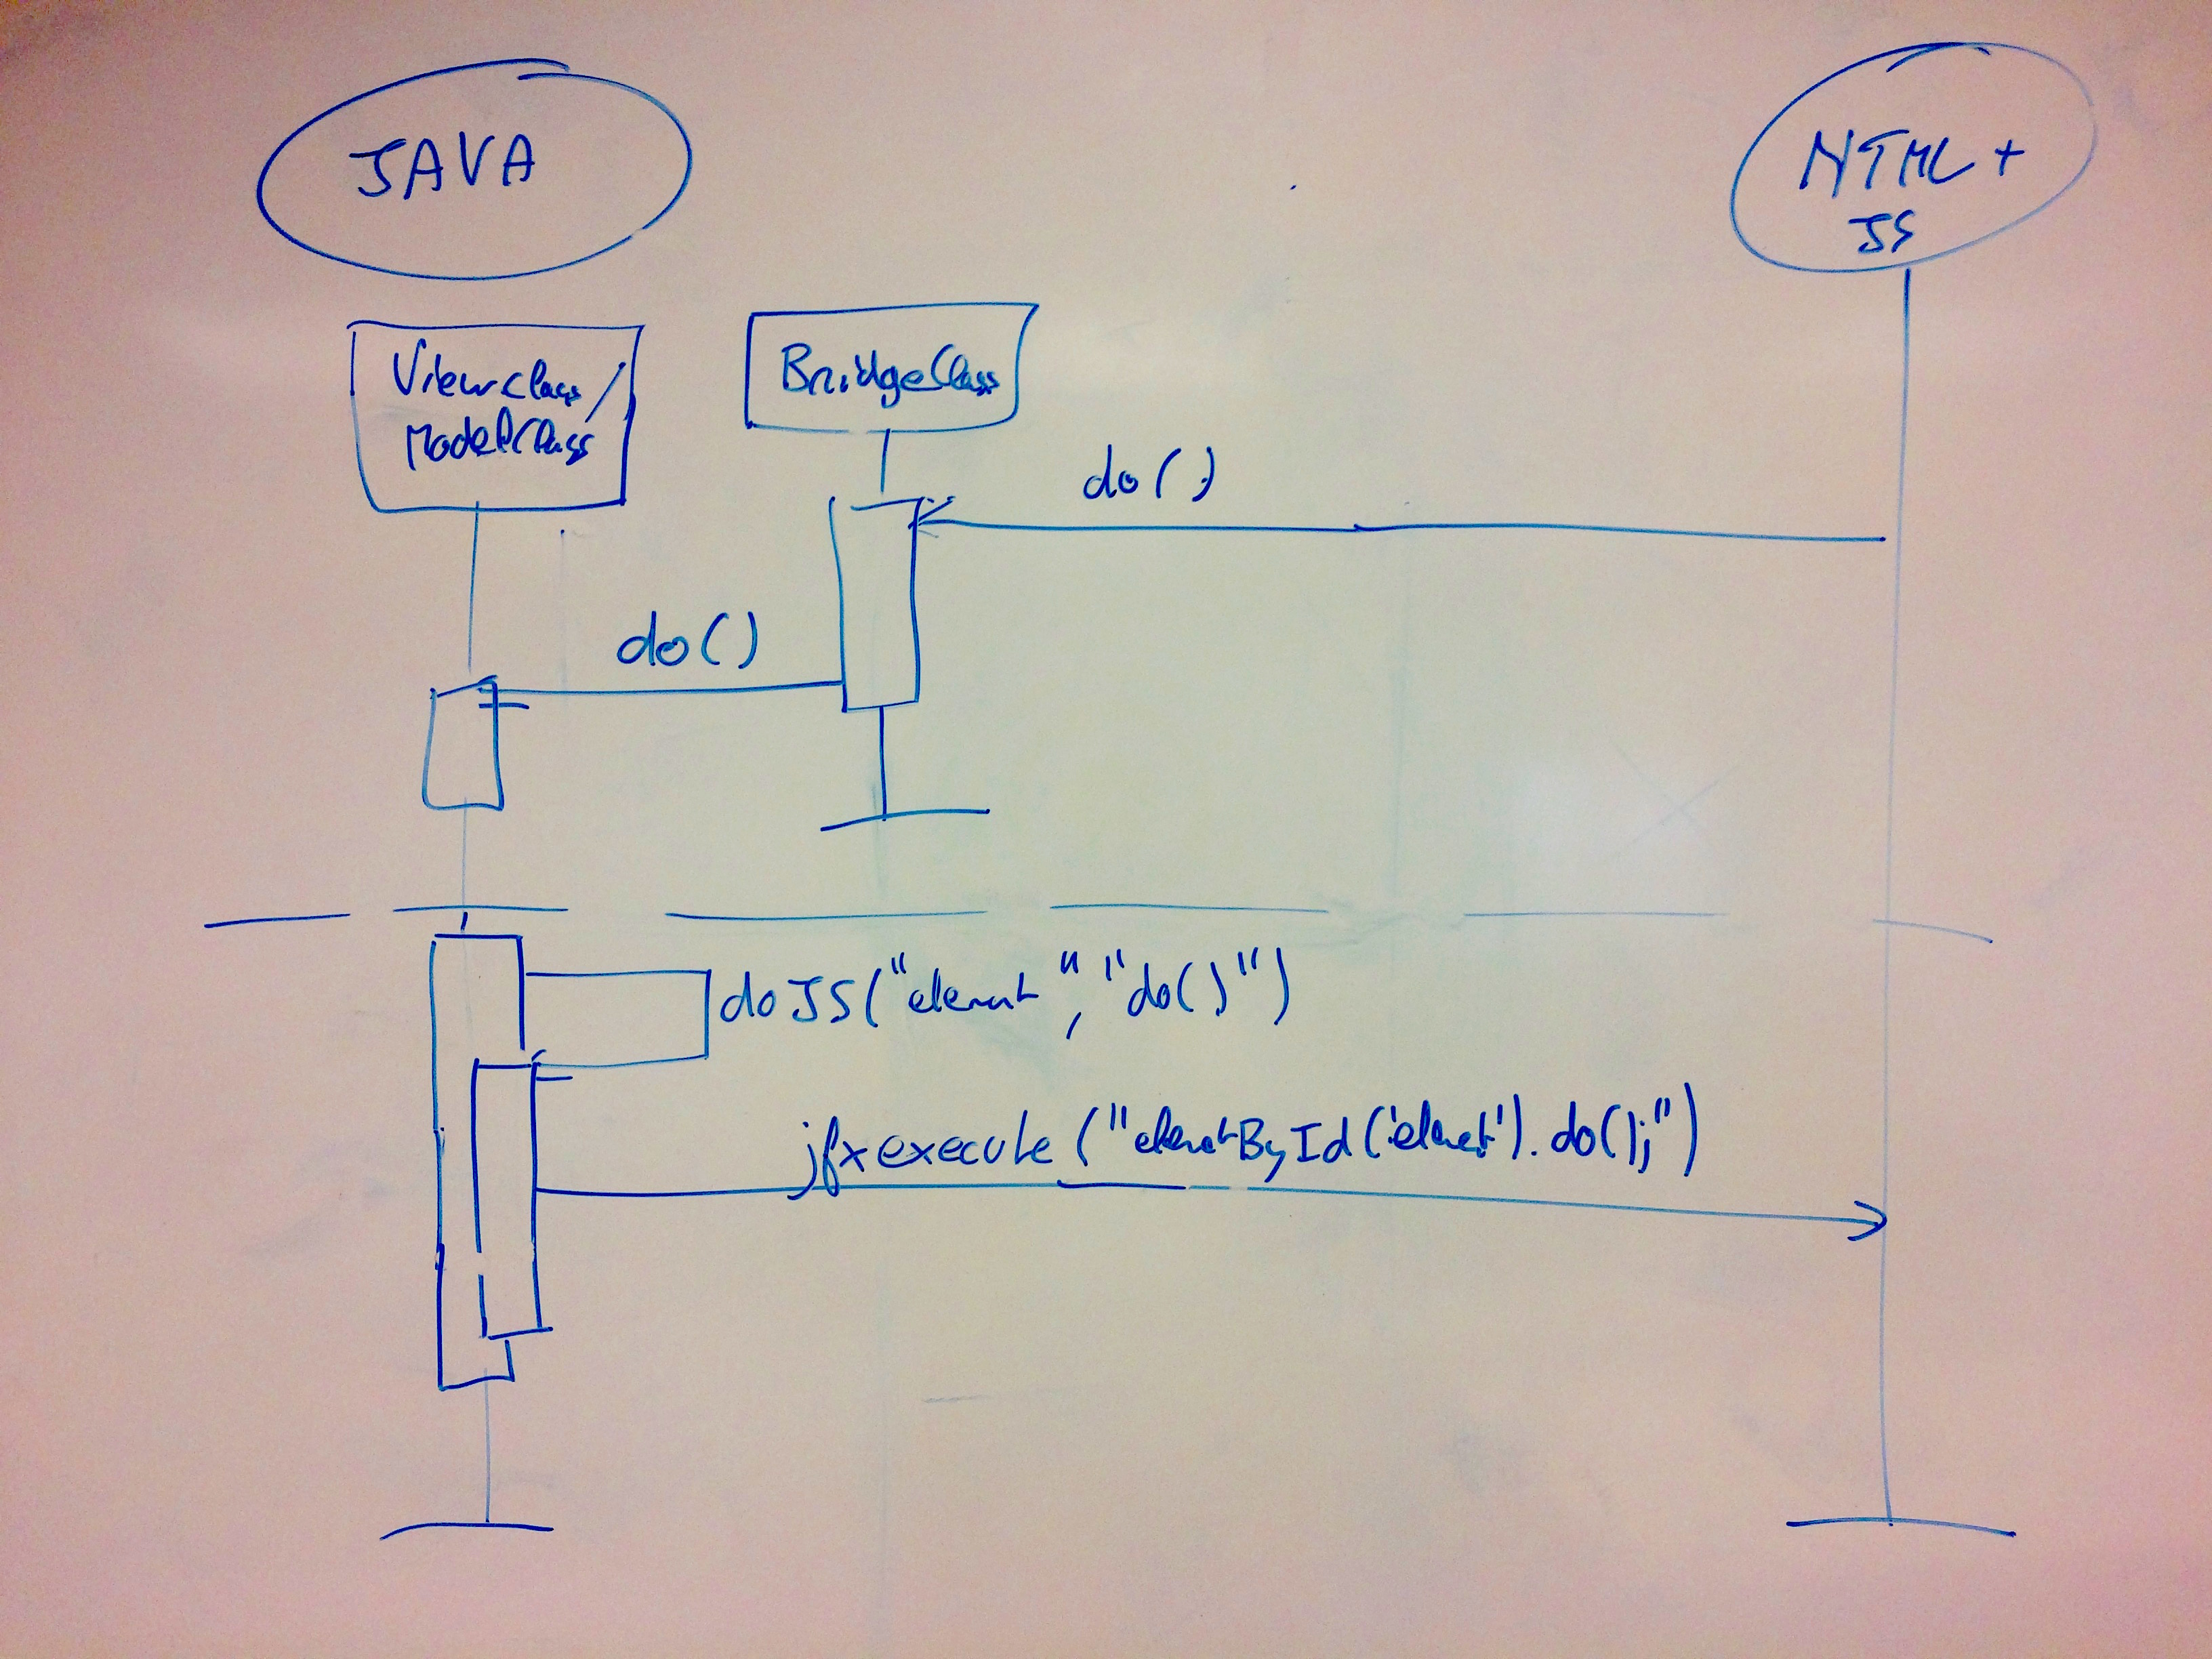 JAVA
HTML +
JS
Viewclass /
ModelClass
BridgeClass
do()
do()
doJS("element", "do()")
jfxexecute("elementById('element').do();")